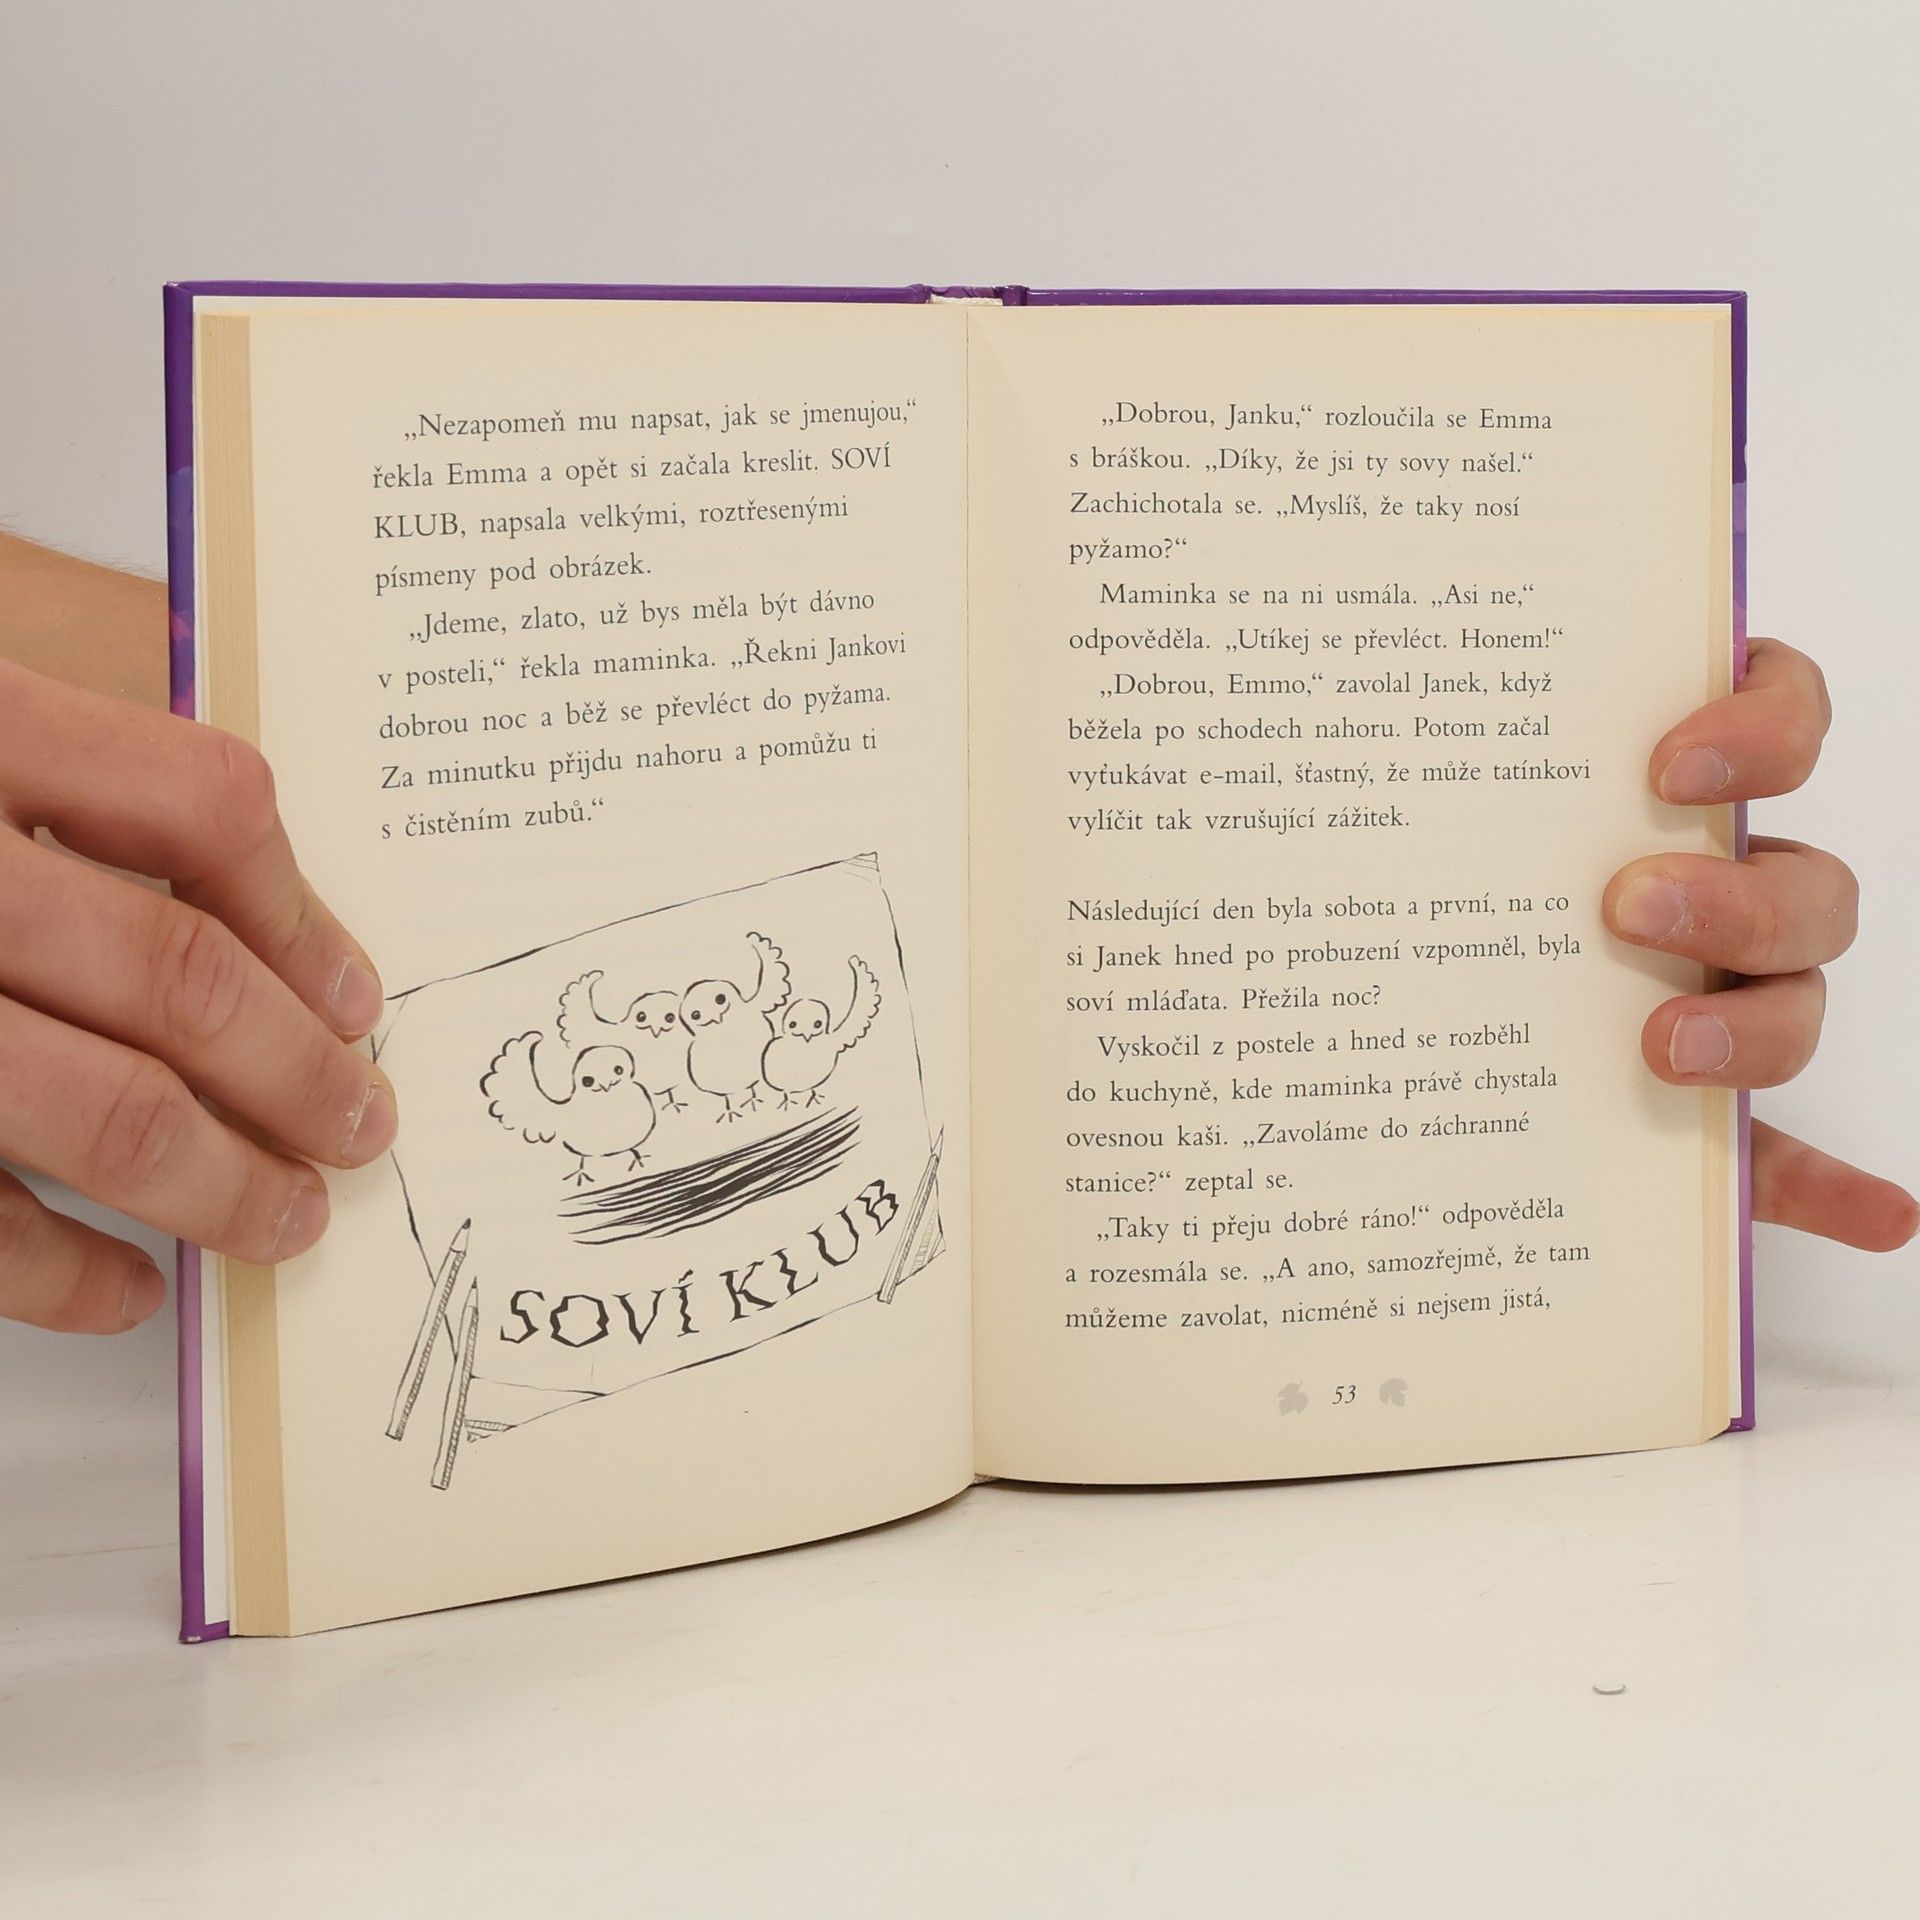 „Nezapomeň mu napsat, jak se jmenujou,“
řekla Emma a opět si začala kreslit. SOVÍ
KLUB, napsala velkými, roztřesenými
písmeny pod obrázek.
„Jdeme, zlato, už bys měla být dávno
v posteli,“ řekla maminka. „Řekni Jankovi
dobrou noc a běž se převléct do pyžama.
Za minutku přijdu nahoru a pomůžu ti
s čistěním zubů.“
SOVÍ KLUB
„Dobrou, Janku,“ rozloučila se Emma
s bráškou. „Díky, že jsi ty sovy našel.“
Zachichotala se. „Myslíš, že taky nosí
pyžamo?“
Maminka se na ni usmála. „Asi ne,“
odpověděla. „Utíkej se převléct. Honem!“
„Dobrou, Emmo,“ zavolal Janek, když
běžela po schodech nahoru. Potom začal
vyťukávat e-mail, šťastný, že může tatínkovi
vylíčit tak vzrušující zážitek.
Následující den byla sobota a první, na co
si Janek hned po probuzení vzpomněl, byla
soví mláďata. Přežila noc?
Vyskočil z postele a hned se rozběhl
do kuchyně, kde maminka právě chystala
ovesnou kaši. „Zavoláme do záchranné
stanice?“ zeptal se.
„Taky ti přeju dobré ráno!“ odpověděla
a rozesmála se. „A ano, samozřejmě, že tam
můžeme zavolat, nicméně si nejsem jistá,
53